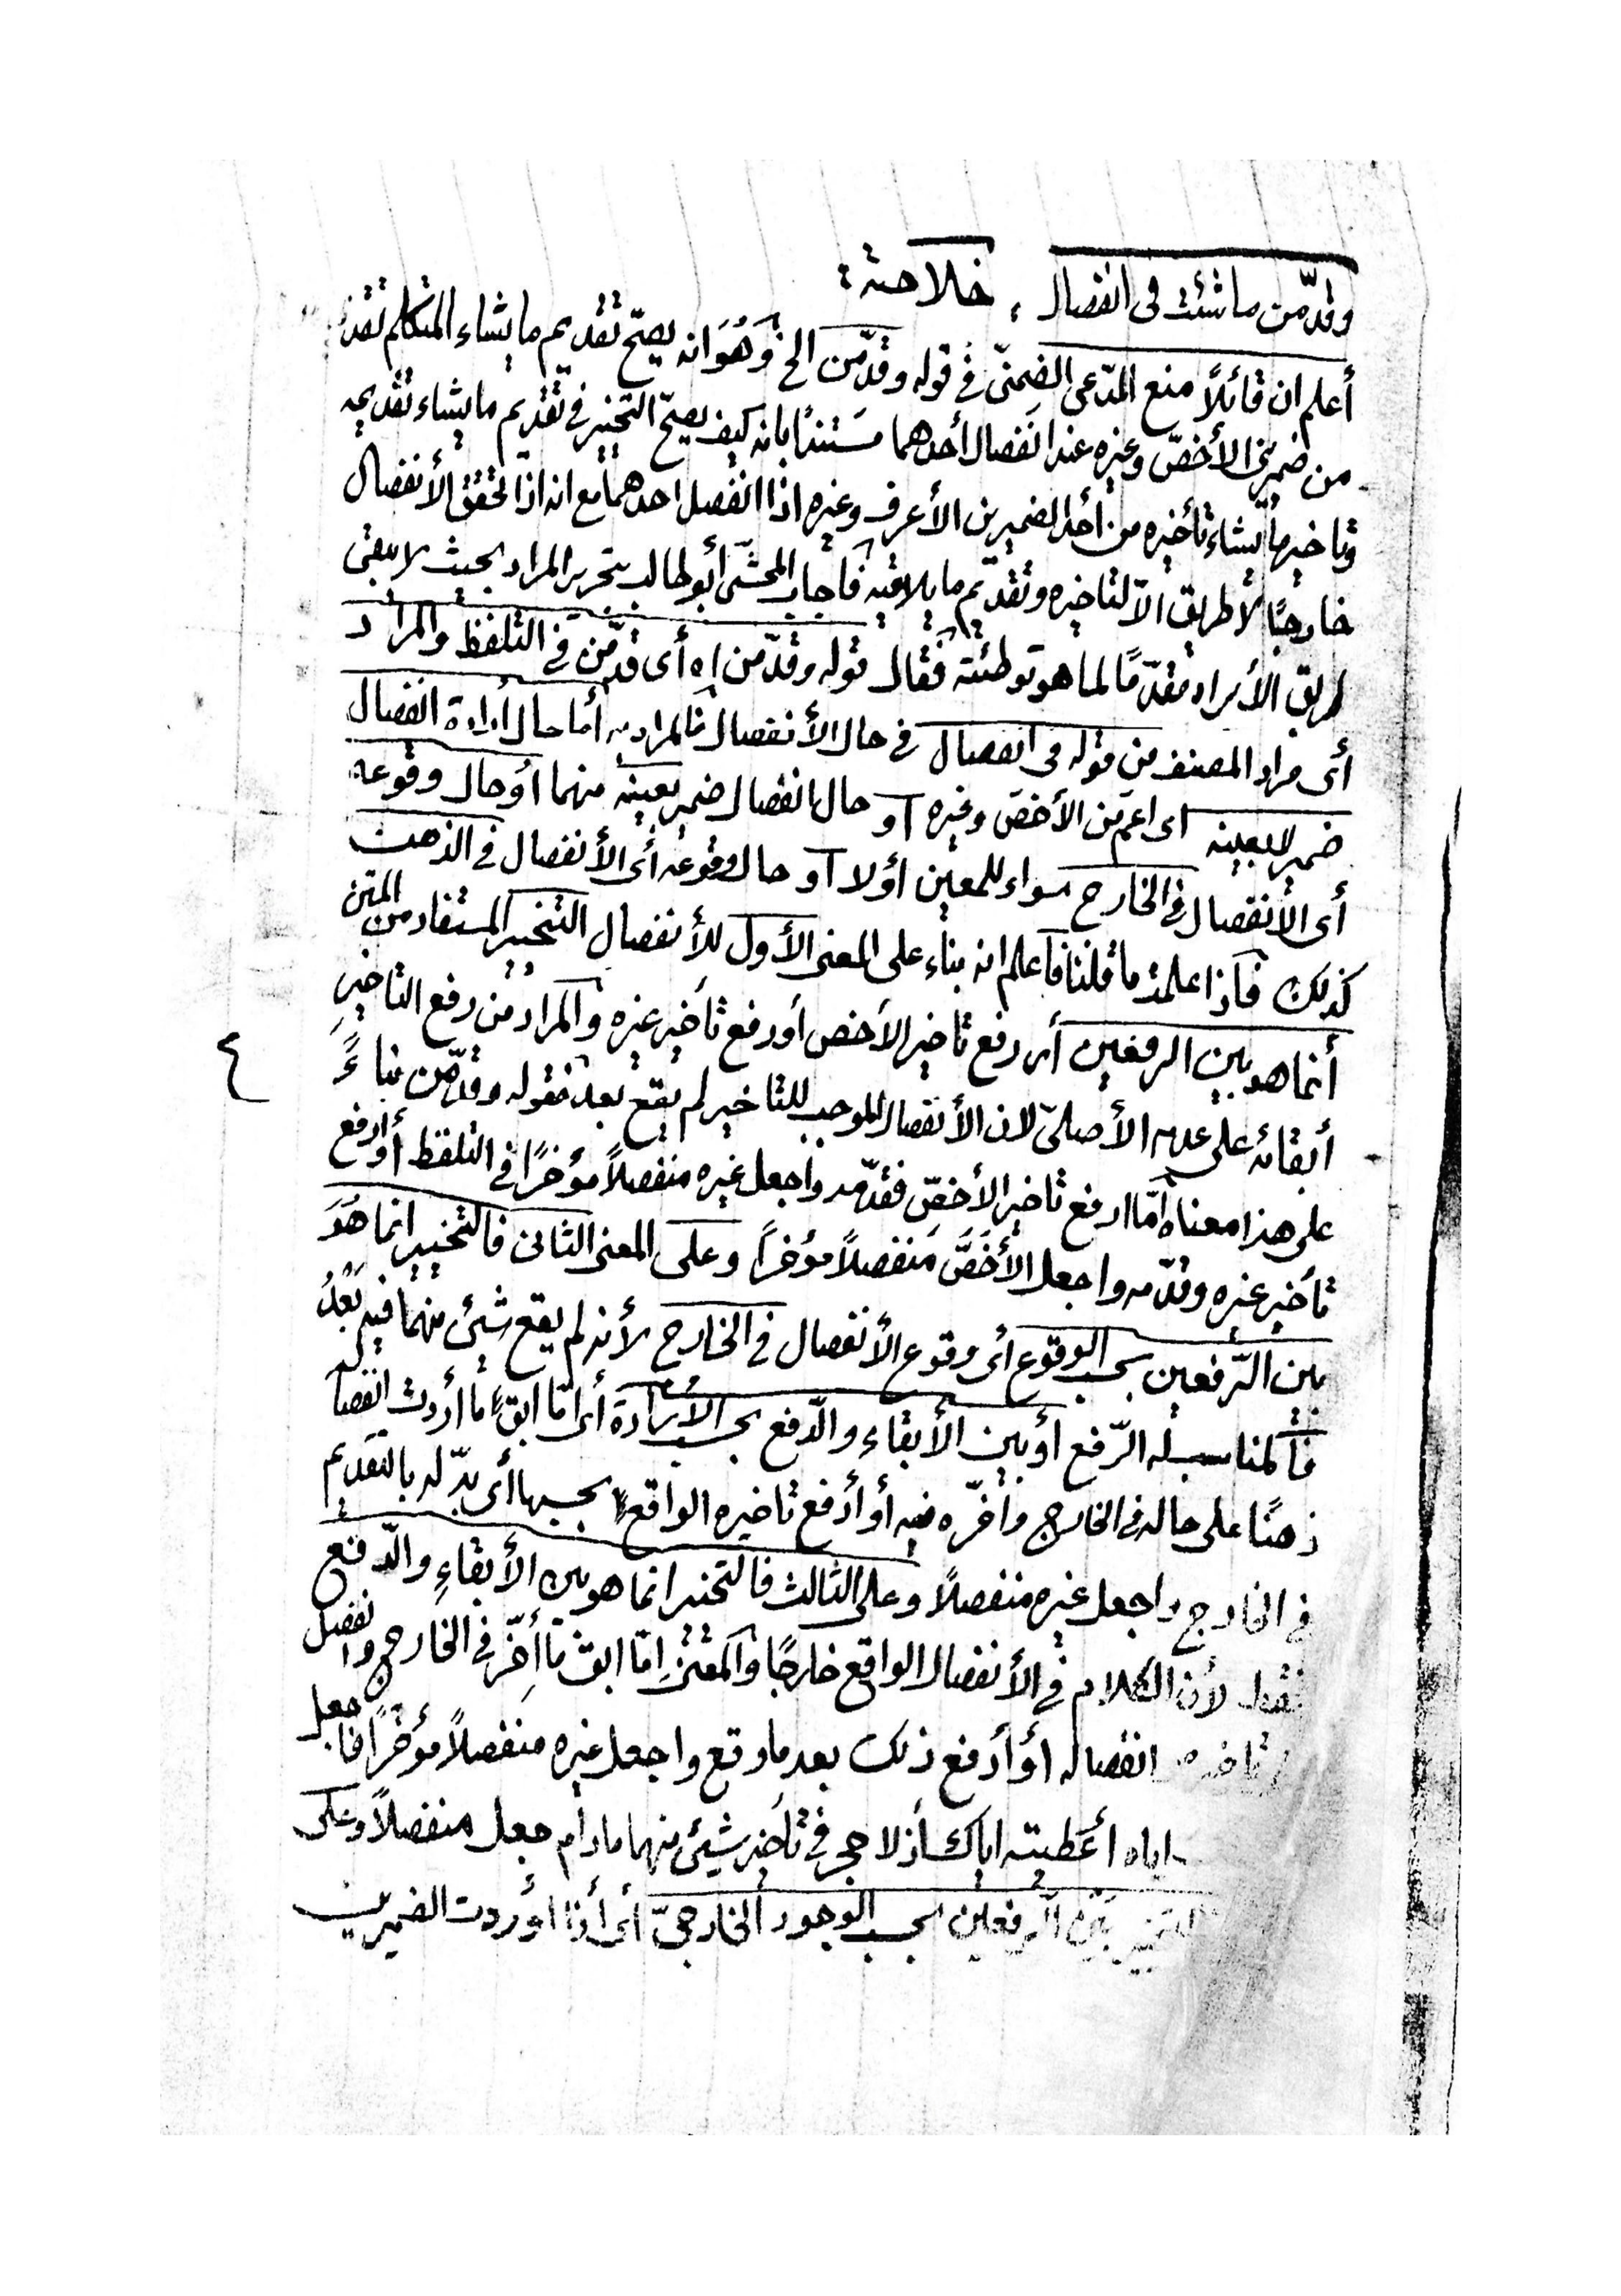 وقدّمن ما شئت فى انفصال ، خلاصة :
أعلم ان قائلاً منع المدّعى الضمنىّ فى قوله وقدّمن الخ وَهُوَ انه يصحّ تقديم ما يشاء المتكلم
من ضميرى الأخصّ وغيره عند انفصال أحدهما مستنداً بانه كيف يصحّ التخيير فى تقديم ما يشاء تقديمه
وتاخير ما يشاء تأخيره من أحد الضميرين الأعرف وغيره اذا انفصل احدهما مع انه اذا تحقق الأنفصال
خارجًا لا طريق الاّ لتاخيره وتقديم ما يلاقيه فأجاب المحشّى أبو طالب بتحرير المراد بحيث لا يبقى
طريق الأيراد مقدّمًا لما هو توطئته فقال قوله وقدّمن اه أى قدّمن فى التلفظ والمراد
أى مراد المصنف من قوله فى انفصال فى حال الأنفصال فالمراد به أما حال أرادة انفصال
ضمير لا بعينه اى اعم من الأخصّ وغيره أو حال انفصال ضمير بعينه منهما أو حال وقوعه
أى الأنفصال فى الخارج سواء للمعين أولا أو حال وقوعه أى الأنفصال فى الذهن
كذلك فأذا علمت ما قلنا فأعلم انه بناء على المعنى الأول للأنفصال التخيير المستفاد من المتن
أنما هو بين الرفعين أى رفع تاخير الأخص أو رفع تأخير غيره والمراد من رفع التاخير
أبقائه على عدمه الأصلىّ لان الأنفصال الموجب للتاخير لم يقع بعد فقوله وقدّمن بناءً
على هذا معناه أمّا ارفع تاخير الأخصّ فقدّمه واجعل غيره منفصلاً مؤخرًا فى التلفظ أو ارفع
تأخير غيره وقدّمه واجعل الأخَصَّ منفصلاً مؤخراً وعلى المعنى الثانى فالتخيير انما هُوَ
بين الرّفعين بحسب الوقوع أى وقوع الأنفصال فى الخارج لأنه لم يقع شيئ منهما فيه بَعْدُ
فألمناسب له الرّفع أو بين الأبقاءِ والدّفع بحسب الأرادة أى امّا ابق ما أردت انفصاله
ذهنًا على حاله فى الخارج وأخّره فيه أو أدفع تاخيره الواقع بحسبها أى بدّله بالتقديم
فى الخارج واجعل غيره منفصلاً وعلى الثالث فالتخيير انما هو بين الأبقاءِ والدّفع
فقط لأن الكلام فى الأنفصال الواقع خارجًا والمعنى اِمّا ابق ما أخّر فى الخارج وانفصل
انفصاله أو أدفع ذلك بعد ما وقع واجعل غيره منفصلاً مؤخراً فاجعل
اياه أعطيته اياك أذ لا حجر فى تأخير شيئ منهما مادام جعل منفصلاً وعلى
التخيير بَيْنَ الرفعين بحسب الوجود الخارجىّ أى أذا أوردت الضميرين
٤